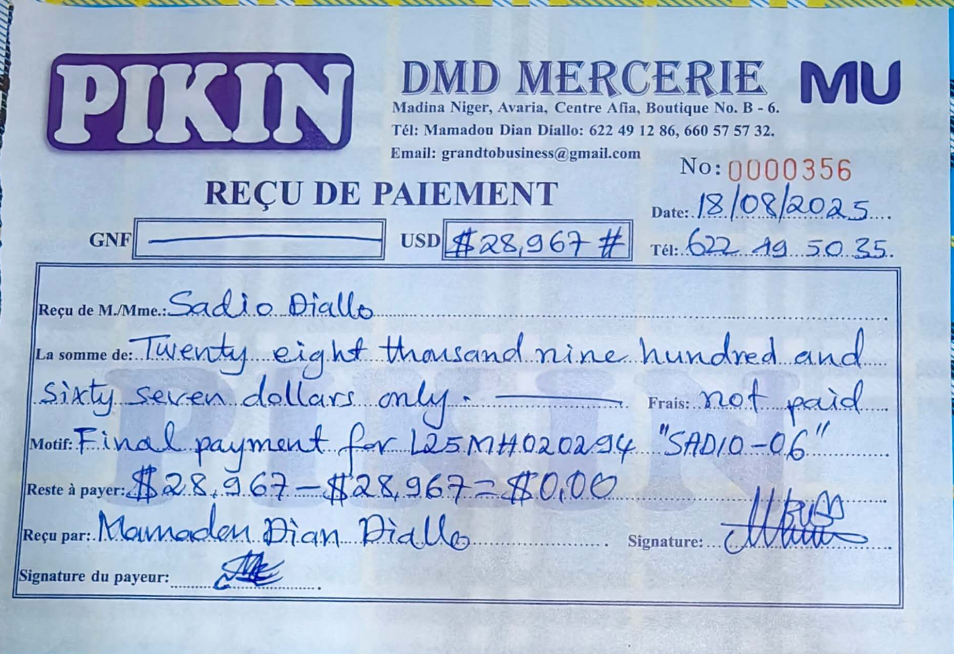 PIKIN
DMD MERCERIE
MU
Madina Niger, Avaria, Centre Afia, Boutique No. B - 6.
Tél: Mamadou Dian Diallo: 622 49 12 86, 660 57 57 32.
Email: grandtobusiness@gmail.com
No: 0000356
REÇU DE PAIEMENT
Date: 18/08/2025
GNF USD $28,967 #
Tél: 622 19 50 35
Reçu de M./Mme.: Sadio Diallo
La somme de: Twenty eight thousand nine hundred and
sixty seven dollars only. Frais: not paid
Motif: Final payment for L25MH020294 "SADIO-06"
Reste à payer: $28,967-$28,967=$0,00
Reçu par: Mamadou Dian Diallo Signature:
Signature du payeur:
PIKIN